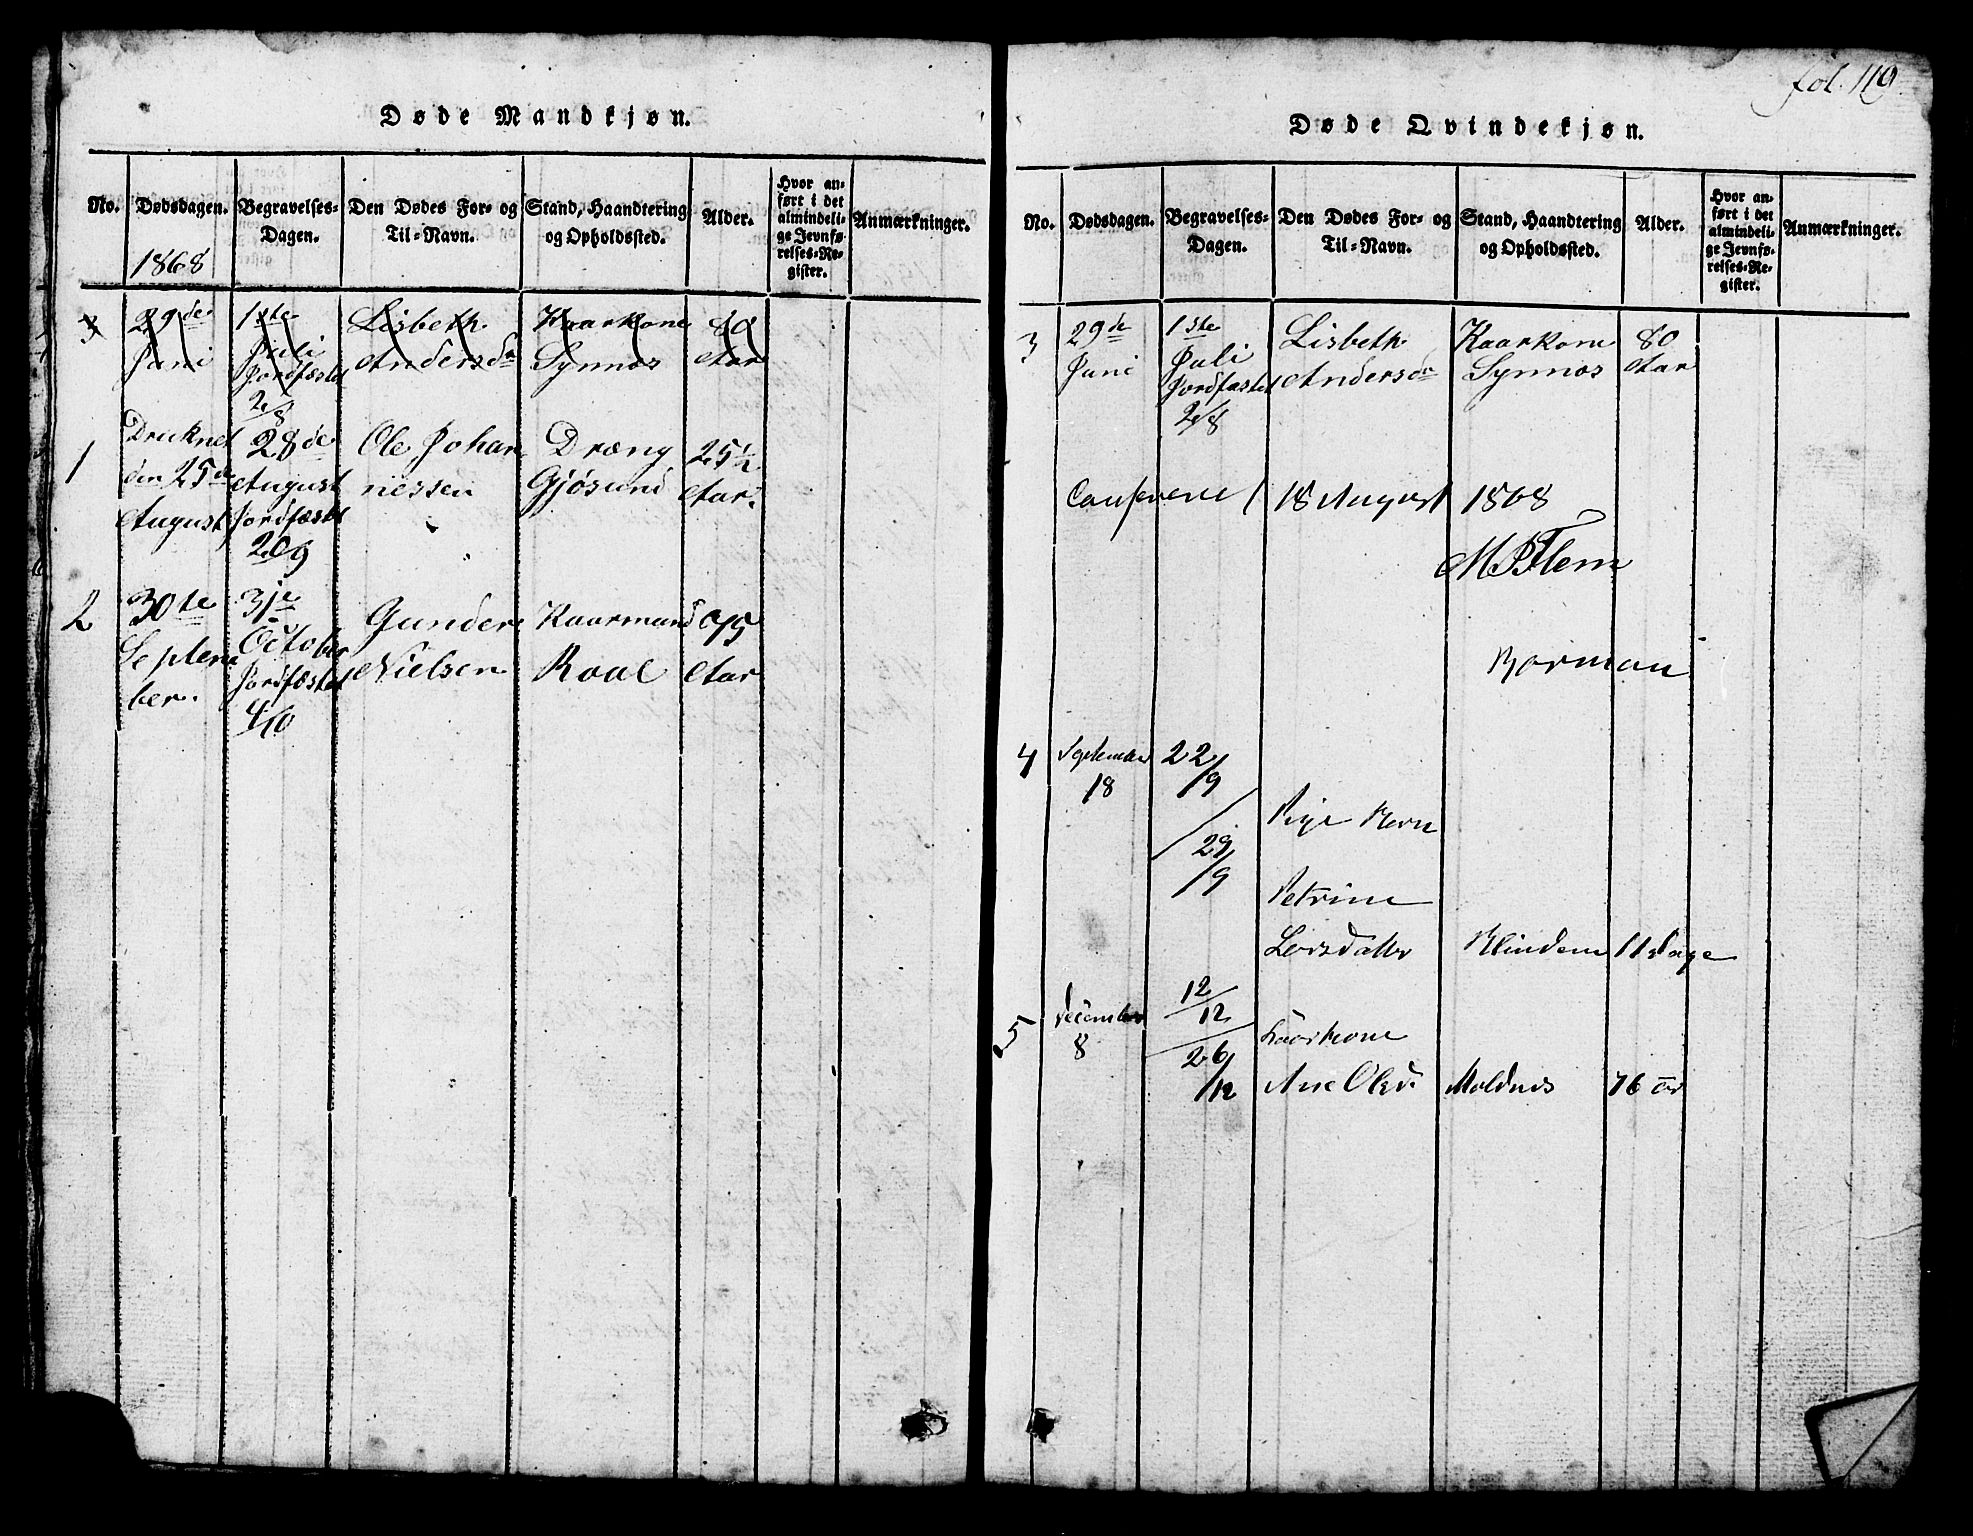 fol. 119.
Døde Mandkjøn.
No. Dødsdagen. Begravelses-Dagen. Den Dødes For- og Til-Navn. Stand, Haandtering og Opholdssted. Alder. Hvor anført i det almindelige Jevnførelses-Register. Anmærkninger.
1868
29de 1ste Lisbeth Kaarkone 80
Juni Juli Andersdr Synnøs Aar
Jordfæstet
2/8
Druknet 28de Ole Johan Dræng 25½
1 den 25de August nessen Gjøsund Aar.
August Jordfæstet
20/9
2 30te 3je Gunder Kaarmand
Septem October Nielsen Roal Aar
ber. Jordfæstet
4/10
Døde Qvindekjøn.
No. Dødsdagen. Begravelses-Dagen. Den Dødes For- og Til-Navn. Stand, Haandtering og Opholdssted. Alder. Hvor anført i det almindelige Jevnførelses-Register. Anmærkninger.
3 29de 1ste Lisbeth Kaarkone 80
Juni Juli Andersdr Synnøs Aar
Jordfæstet
2/8
Confereret 18 August 1868
Flem
4 September 22/9
18
Pige Barn
29/9
Petrine
Larsdatter Blindem 11 Dage
5 December 12/12
8 Kaarkone
26/12 Ane Olsd. Moldnes 76 år